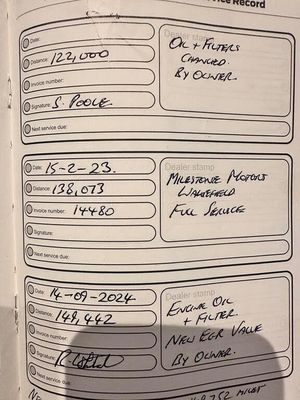 Service Record
Date:
Dealer stamp
Distance: 122,000
Invoice number:
Signature: S. POOLE
Next service due:
OIL + FILTERS
CHANGED
BY OWNER.
Date: 15-2-23.
Dealer stamp
Distance: 138,073
Invoice number: 14480
Signature:
Next service due:
MILESTONE MOTORS
WAKEFIELD
FULL SERVICE
Date: 14-09-2024
Dealer stamp
Distance: 149,442
Invoice number:
Signature:
Next service due:
ENGINE OIL
+ FILTER.
NEW EGR VALVE
BY OWNER.
MILES